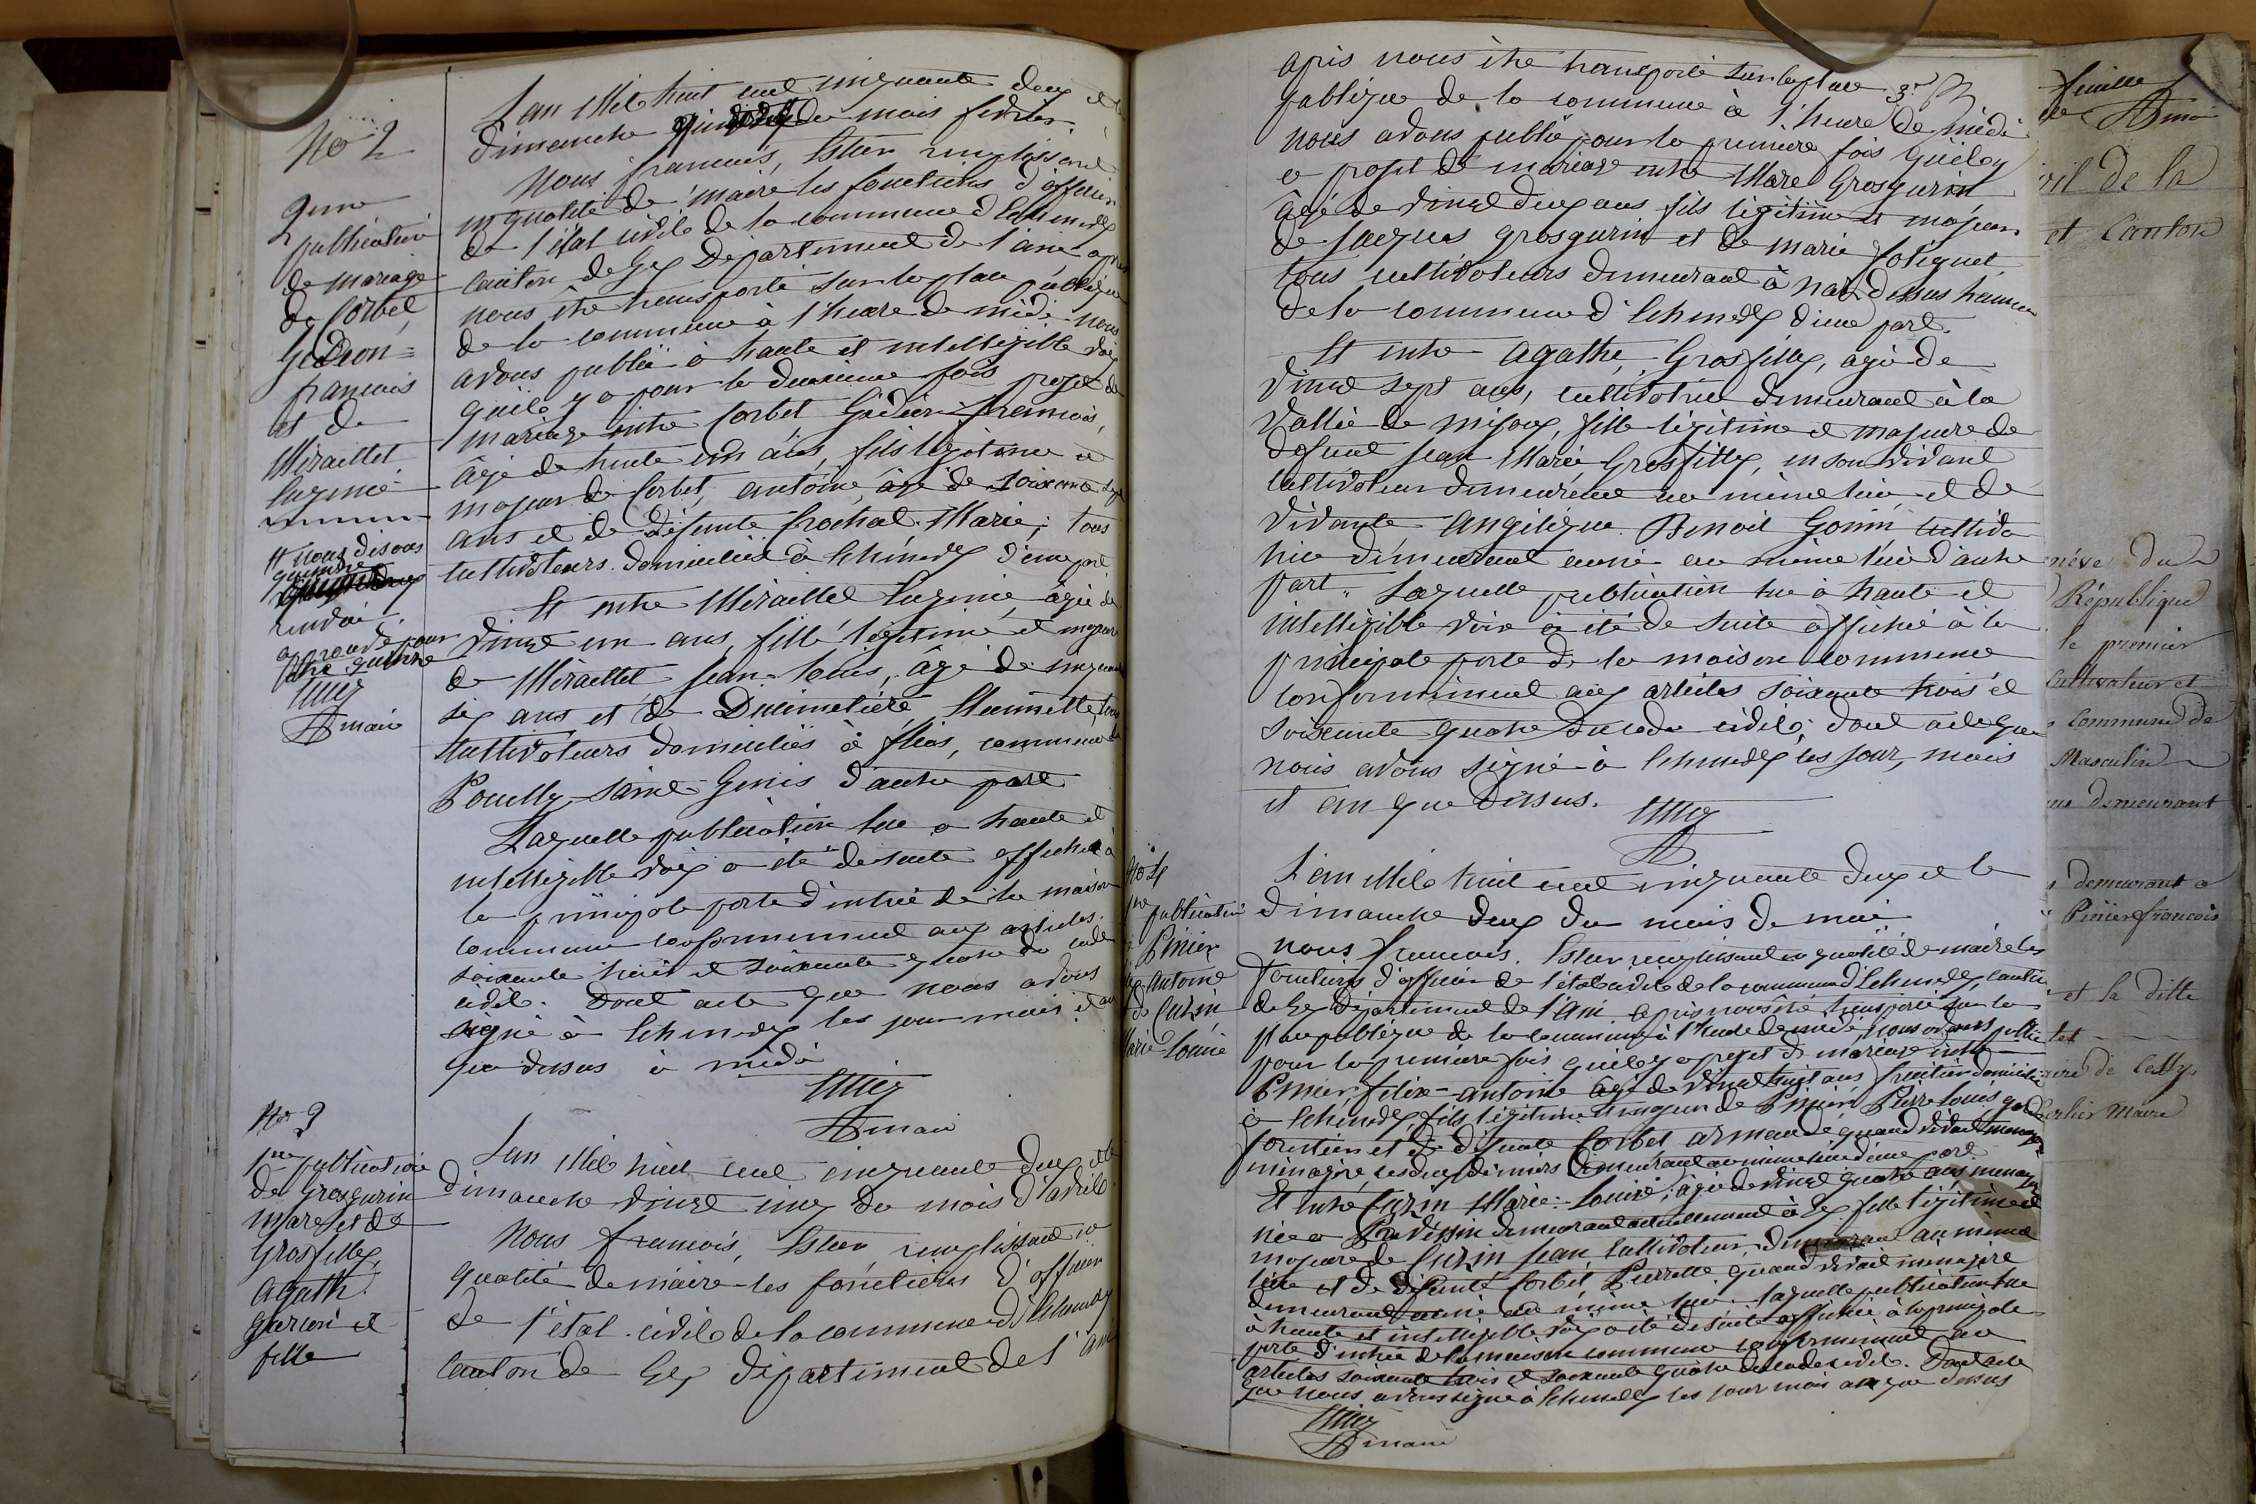 No 2
2eme
publication
de mariage
de Corbet
Gédéon=
francois
et de
Miraillet
Eugenie
# nous disons
quinze
renvoi.
approuvé pour
être quinze
maire
L'an Mil huit cent cinquante deux et le
dimanche du mois février.
Nous francois, Estier remplissant
en qualité de maire les fonctions d'officier
de l'état civil de la commune d'Echenevex
canton de Gex Département de l'ain après
nous être transporté sur la place publique
de la commune à l'heure de midi nous
avons publié à haute et intelligible voix
qu'il y a pour la deuxieme fois projet de
mariage entre Corbet Gédéon francois,
âgé de trente un ans, fils légitime et
majeur de Corbet, antoine, âgé de soixante sept
ans et de défunte Crochat Marie; tous
cultivateurs domiciliés à Echenevex d'une part
Et entre Miraillet Eugenie, agée de
vingt un ans, fille légitime et majeure
de Miraillet Jean-louis, âgé de cinquante
six ans et de tous
Cultivateurs domiciliés à flies, commune de
Pouilly saint Genis d'autre part
Laquelle publication lue a haute et
intelligible voix a été desuite affichée à
la principale porte d'entrée de la maison
commune conformement aux articles
soixante trois et soixante quatre du code
civil. Dont acte que nous avons
signé à Echenevex les jour mois et an
que dessus à midi
maire
No 3
1ere publication
de Grosgurin
Marc et de
Grosfilley
Agathe
garcon et
fille
L'an Mil huit cent cinquante deux et le
dimanche vingt cinq du mois d'avril
Nous francois, Estier remplissant en
qualité de maire les fonctions d'officier
de l'état civil de la commune d'Echenevex
canton de Gex département de l'ain
après nous être transporté sur la place
publique de la commune à l'heure de midi
nous avons publié pour la premiere fois qu'il y
a projet de mariage entre Marc Grosgurin
âgé de vingt deux ans fils légitime et majeur
de Jacques Grosgurin et de marie
tous cultivateurs demeurant à
de la commune d'Echenevex d'une part.
Et entre Agathe, Grosfilley, agée de
vingt sept ans, cultivatrice demeurant à la
vallée de mijoux, fille légitime et majeure de
defunt Jean Marie Grosfilley, en son vivant
cultivateur demeurant au même lieu et de
vivante Angélique Benoit Gonin cultiva
trice demeurant aussi au même lieu d'autre
part. Laquelle publication lue à haute et
intelligible voix à été de suite affichée à la
principale porte de la maison commune
conformément aux articles soixante trois et
soixante quatre du code civil; dont acte que
nous avons signé à Echenevex les jour, mois
et an que dessus.
No 4
1ere publication
Prinier
antoine
de Curzin
Marie Louise
L'an Mil huit cent cinquante deux et le
dimanche deux du mois de mai
nous francois. Estier remplissant en qualité de maire les
fonctions d'officier de l'état civil de la commune d'Echenevex, canton
de Gex département de l'Ain après nous être transporté sur la
place publique de la commune à l'heure de midi, nous avons publié
pour la premiere fois qu'il y a projet de mariage entre
felix-antoine agé de vingt huit ans fruitier domicilié
à Echenevex, fils légitime et majeur de Pierre Louis garde
forestier et de défunte Corbet armande quand vivait
ménagère, les deux derniers demeurant au même lieu d'une part.
Et entre Curzin Marie-Louise, agée de vingt quatre ans menagere
née a Prévessin demeurant actuellement à Gex fille légitime et
majeure de Curzin Jean Cultivateur, demeurant au même
lieu et de défunte Corbet Pierrette quand vivait menagère
demeurant aussi au même lieu. laquelle publication lue
à haute et intelligible voix a été desuite affichée à la principale
porte d'entrée de la maison commune conformement aux
articles soixante trois et soixante quatre du code civil. Dont acte
que nous avons signé à Echenevex les jour mois an que dessus
maire
feuille
de
vil de la
et Canton
du
République
le premier
Cultivateur et
Commune de
Masculin
demeurant
demeurant a
francois
et la ditte
de Cessy
Maire